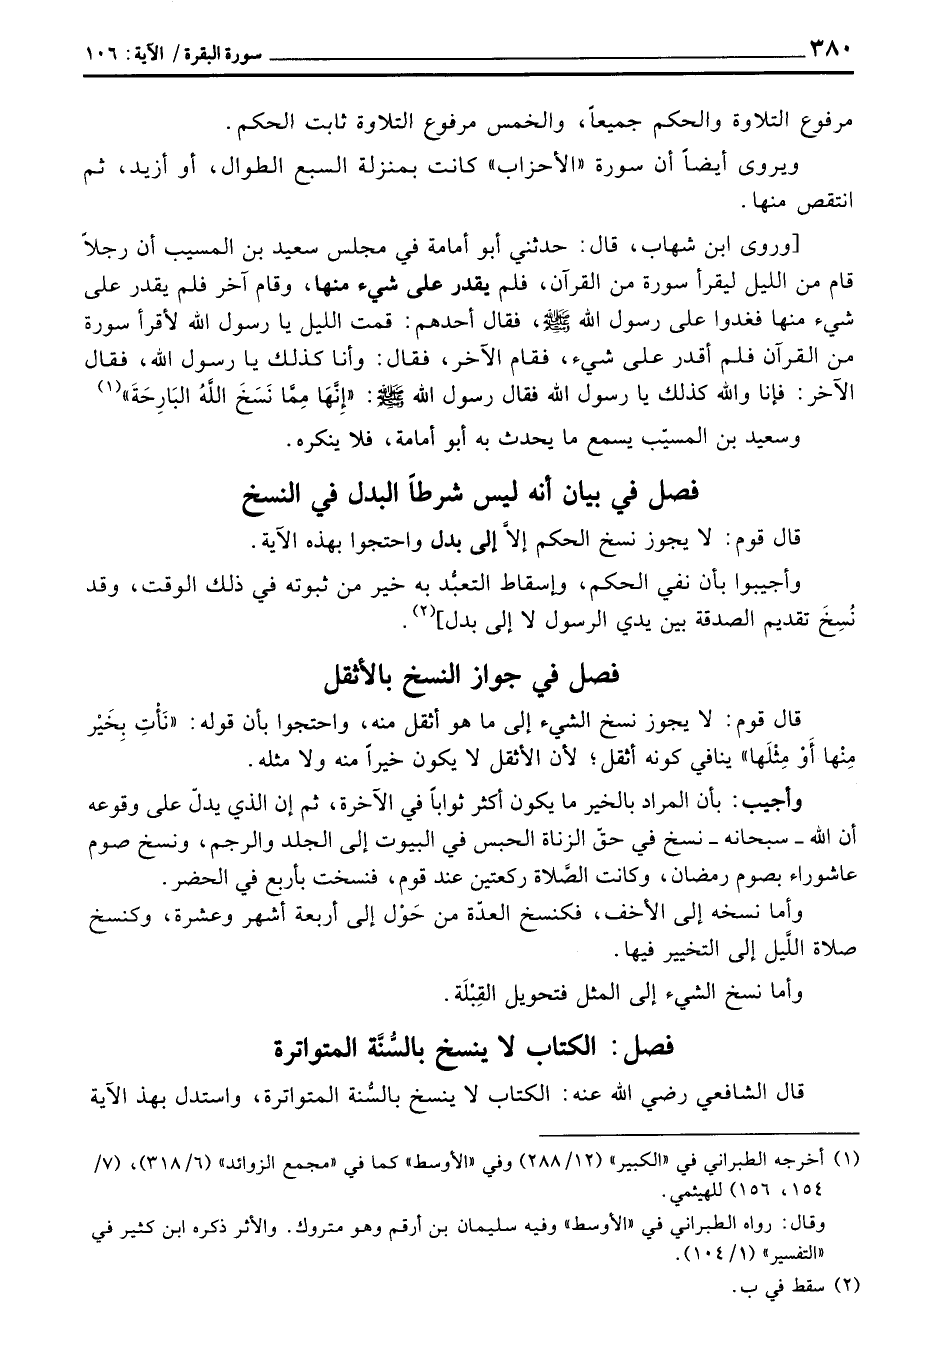 ٣٨٠ سورة البقرة / الآية: ١٠٦
مرفوع التلاوة والحكم جميعاً، والخمس مرفوع التلاوة ثابت الحكم.
ويروى أيضاً أن سورة «الأحزاب» كانت بمنزلة السبع الطوال، أو أزيد، ثم
انتقص منها.
[وروى ابن شهاب، قال: حدثني أبو أمامة في مجلس سعيد بن المسيب أن رجلاً
قام من الليل ليقرأ سورة من القرآن، فلم يقدر على شيء منها، وقام آخر فلم يقدر على
شيء منها فغدوا على رسول الله ﷺ، فقال أحدهم: قمت الليل يا رسول الله لأقرأ سورة
من القرآن فلم أقدر على شيء، فقام الآخر، فقال: وأنا كذلك يا رسول الله، فقال
الآخر: فإنا والله كذلك يا رسول الله فقال رسول الله ﷺ: «إِنَّهَا مِمَّا نَسَخَ اللَّهُ البَارِحَةَ»(١)
وسعيد بن المسيّب يسمع ما يحدث به أبو أمامة، فلا ينكره.
فصل في بيان أنه ليس شرطاً البدل في النسخ
قال قوم: لا يجوز نسخ الحكم إلاَّ إلى بدل واحتجوا بهذه الآية.
وأجيبوا بأن نفي الحكم، وإسقاط التعبُّد به خير من ثبوته في ذلك الوقت، وقد
نُسِخَ تقديم الصدقة بين يدي الرسول لا إلى بدل](٢).
فصل في جواز النسخ بالأثقل
قال قوم: لا يجوز نسخ الشيء إلى ما هو أثقل منه، واحتجوا بأن قوله: «نَأْتِ بِخَيْر
مِنْها أَوْ مِثْلَها» ينافي كونه أثقل؛ لأن الأثقل لا يكون خيراً منه ولا مثله.
وأجيب: بأن المراد بالخير ما يكون أكثر ثواباً في الآخرة، ثم إن الذي يدلّ على وقوعه
أن الله ـ سبحانه ـ نسخ في حقّ الزناة الحبس في البيوت إلى الجلد والرجم، ونسخ صوم
عاشوراء بصوم رمضان، وكانت الصَّلاة ركعتين عند قوم، فنسخت بأربع في الحضر.
وأما نسخه إلى الأخف، فكنسخ العدّة من حَوْل إلى أربعة أشهر وعشرة، وكنسخ
صلاة اللَّيل إلى التخيير فيها.
وأما نسخ الشيء إلى المثل فتحويل القِبْلَة.
فصل: الكتاب لا ينسخ بالسُّنَّة المتواترة
قال الشافعي رضي الله عنه: الكتاب لا ينسخ بالسُّنة المتواترة، واستدل بهذ الآية
(١) أخرجه الطبراني في «الكبير» (١٢/ ٢٨٨) وفي «الأوسط» كما في «مجمع الزوائد» (٦/ ٣١٨)، (٧/
١٥٤، ١٥٦) للهيثمي.
وقال: رواه الطبراني في «الأوسط» وفيه سليمان بن أرقم وهو متروك. والأثر ذكره ابن كثير في
«التفسير» (١/ ١٠٤).
(٢) سقط في ب.